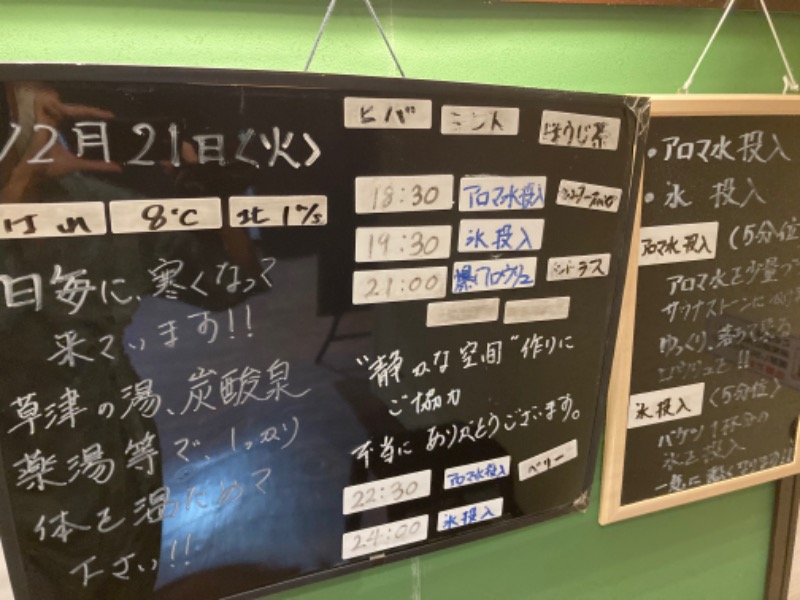 12月21日〈火〉
8℃ 北1㎧
日毎に、寒くなって
来ています!!
草津の湯、炭酸泉
薬湯等で、しっかり
体を温ためて
下さい!!
ヒバ ミント ほうじ茶
18:30 アロマ水投入
19:30 氷投入
21:00 ラス
"静かな空間"作りに
ご協力
本当にありがとうございます。
22:30 アロマ水投入 ベリー
24:00 氷投入
・アロマ水投入
・氷 投入
アロマ水投入 (5分位)
アロマ水を少量づつ
サウナストーンに
ゆっくり、
氷投入 〈5分位〉
バケツ1杯分の
氷を投入